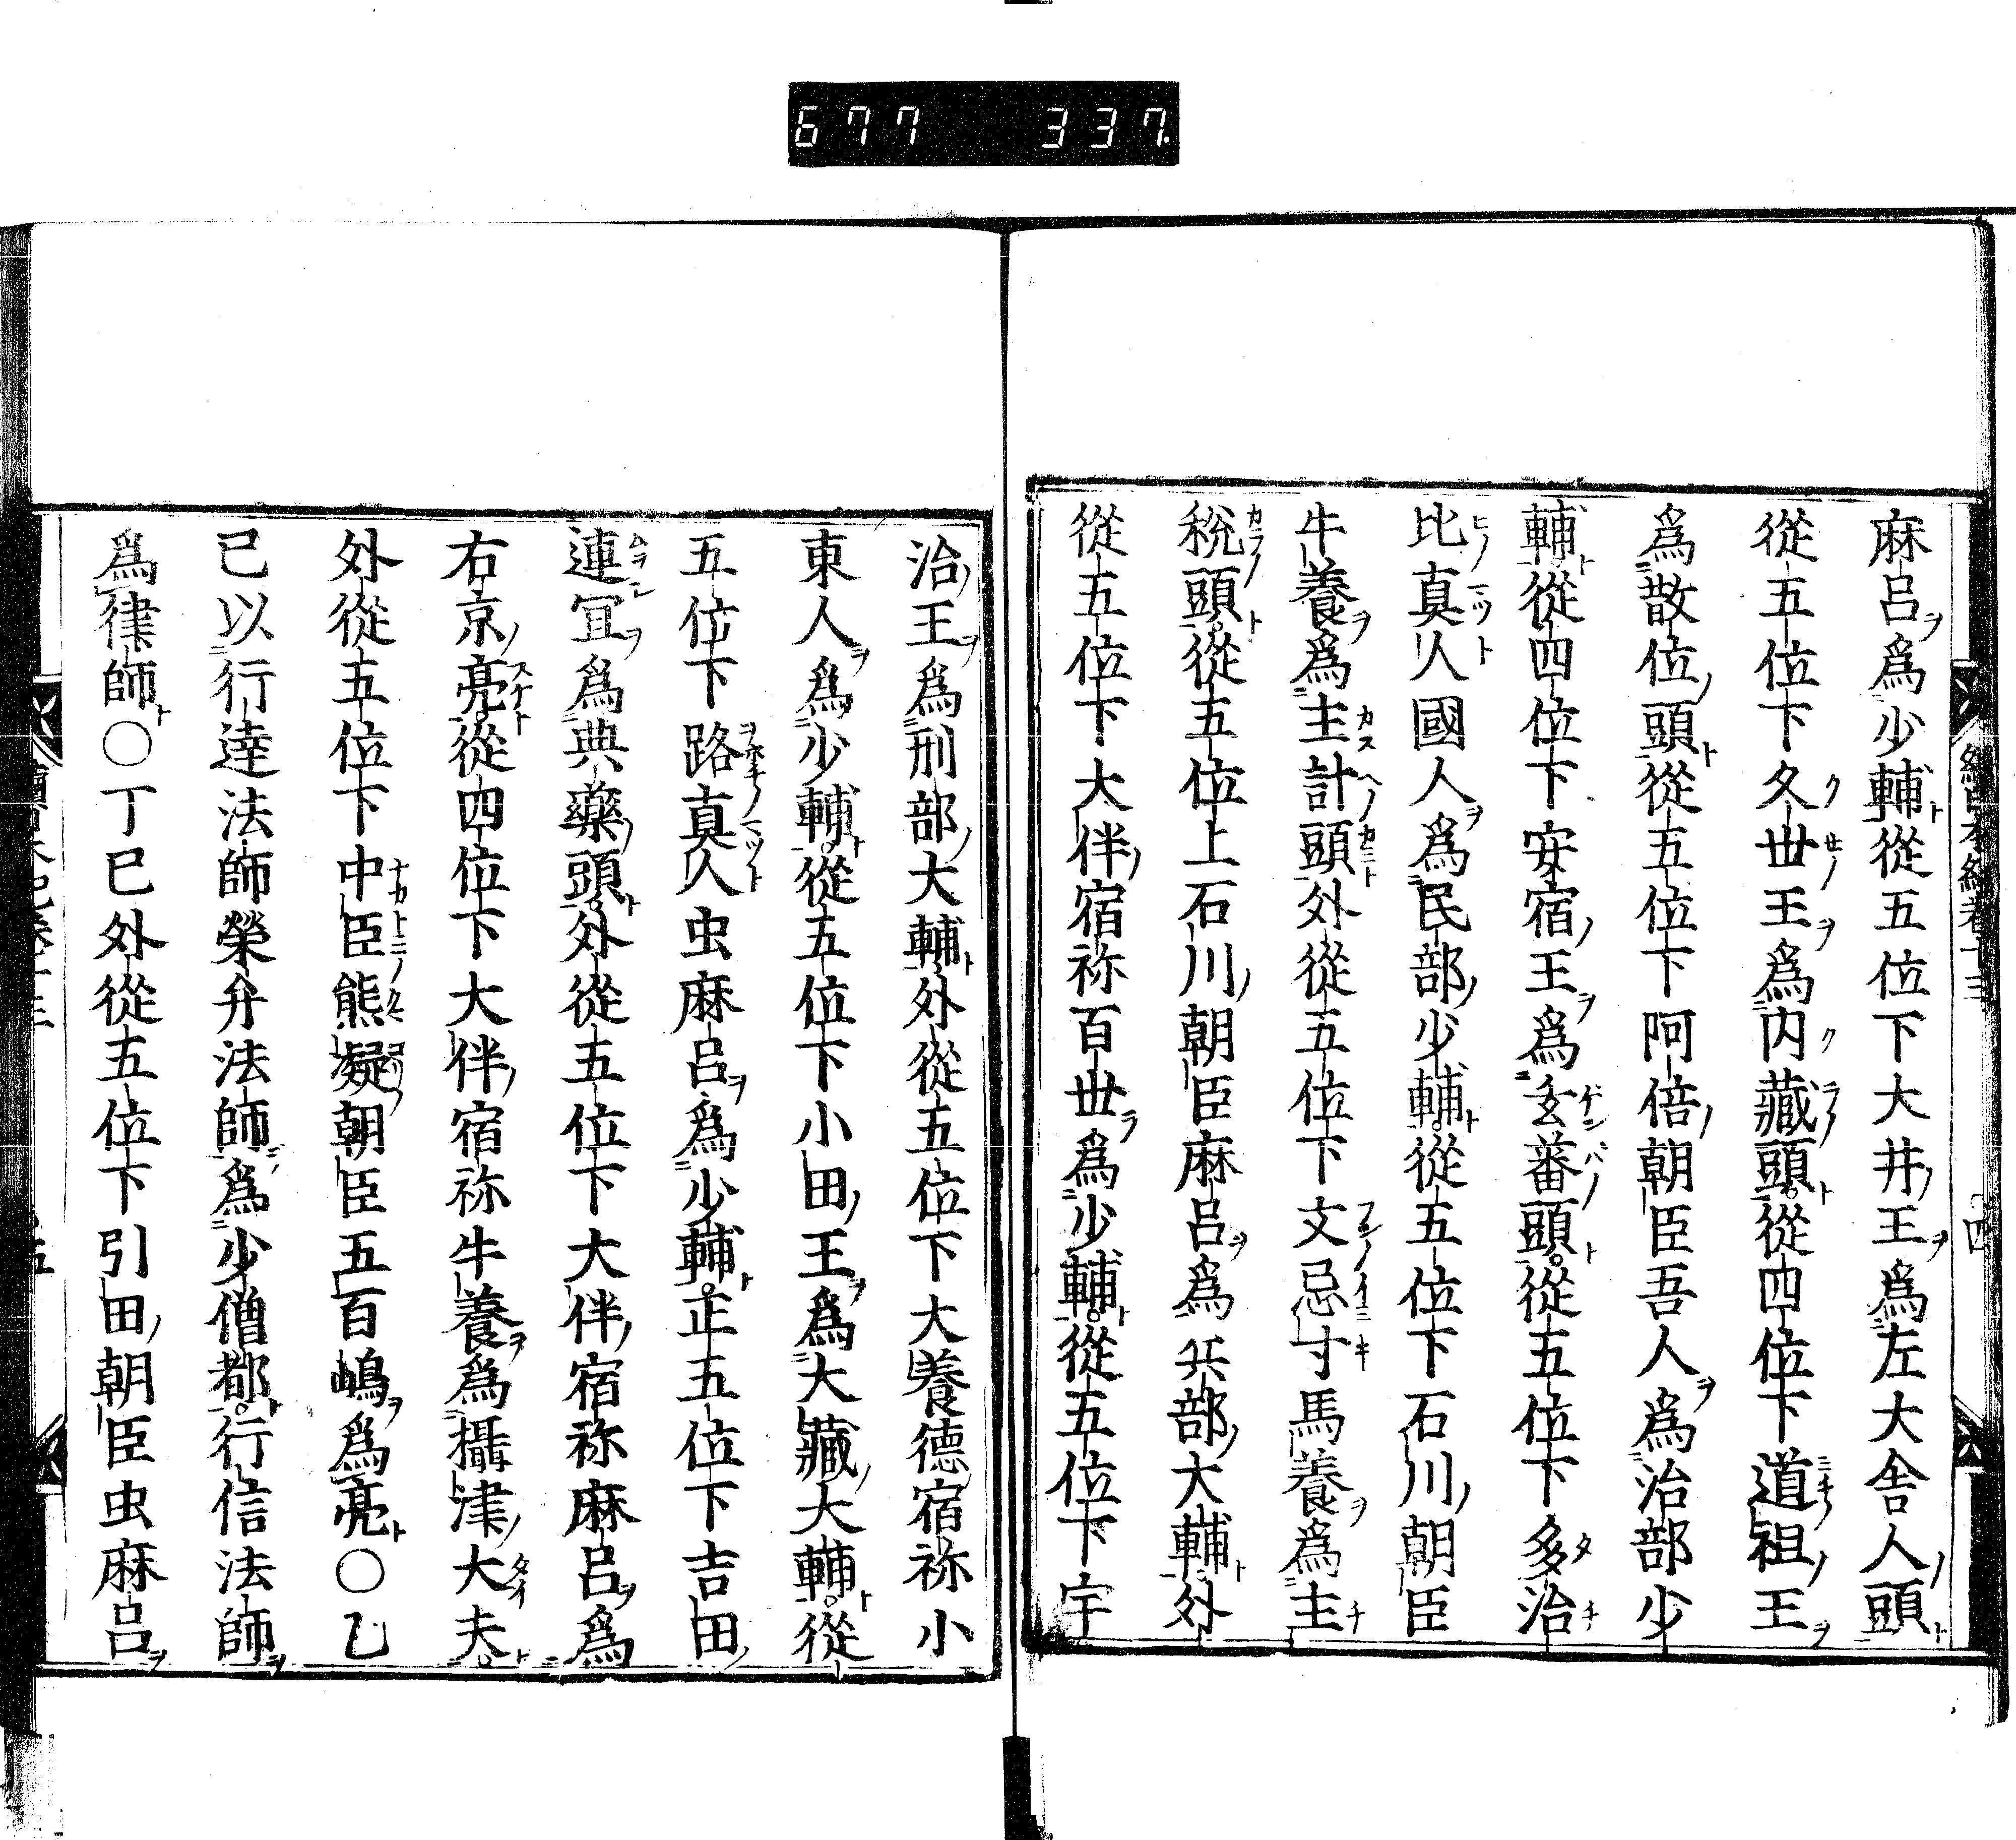 677 337
麻呂爲少輔從五位下大井王爲左大舍人頭
從五位下久世王爲内藏頭從四位下道祖王
爲散位頭從五位下阿倍朝臣吾人爲治部少
輔從四位下安宿王爲玄蕃頭從五位下多治
比真人國人爲民部少輔從五位下石川朝臣
牛養爲主計頭外從五位下文忌寸馬養爲主
稅頭從五位上石川朝臣麻呂爲兵部大輔外
從五位下大伴宿祢百世爲少輔從五位下宇
治王爲刑部大輔外從五位下大養德宿祢小
東人爲少輔從五位下小田王爲大藏大輔從
五位下路真人虫麻呂爲少輔正五位下吉田
連宜爲典藥頭外從五位下大伴宿祢麻呂爲
右京亮從四位下大伴宿祢牛養爲攝津大夫
外從五位下中臣熊凝朝臣五百嶋爲亮○乙
巳以行達法師榮弁法師爲少僧都行信法師
爲律師○丁巳外從五位下引田朝臣虫麻呂